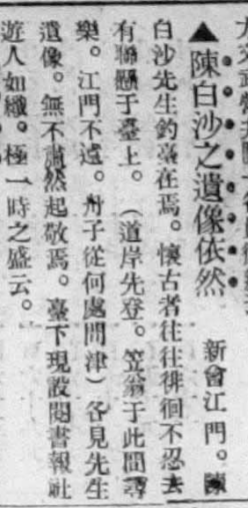 ▲陳白沙之遺像依然　新會江門。陳
白沙先生釣臺在焉。懷古者往往徘徊不忍去
有聯懸于臺上。（道岸先登。笠翁于此間尋
樂。江門不遠。舟子從何處問津）咨見先生
遺像。無不肅然起敬焉。臺下現設閱書報社
遊人如織。極一時之盛云。